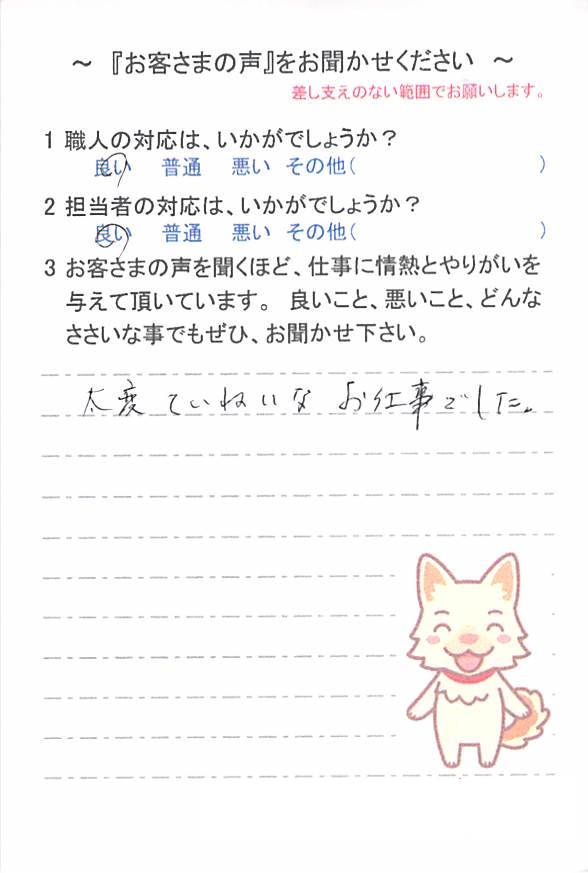 ～ 『お客さまの声』をお聞かせください ～
差し支えのない範囲でお願いします。
1 職人の対応は、いかがでしょうか？
良い 普通 悪い その他( )
2 担当者の対応は、いかがでしょうか？
良い 普通 悪い その他( )
3 お客さまの声を聞くほど、仕事に情熱とやりがいを
与えて頂いています。 良いこと、悪いこと、どんな
ささいな事でもぜひ、お聞かせ下さい。
太変ていねいな お仕事でした。